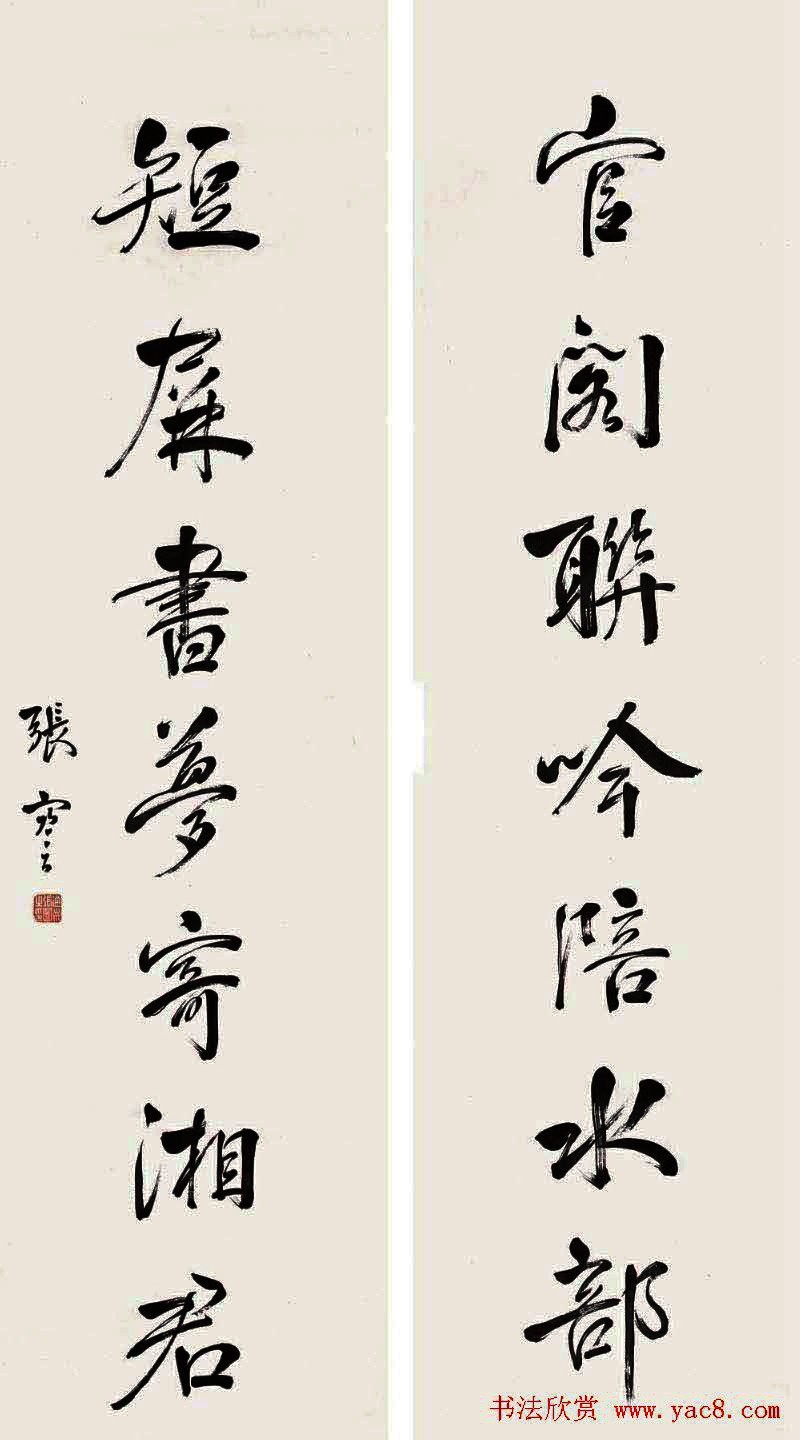 官阁聯吟陪水部
短屏書夢寄湘君
張寒雲
书法欣赏 www.yac8.com